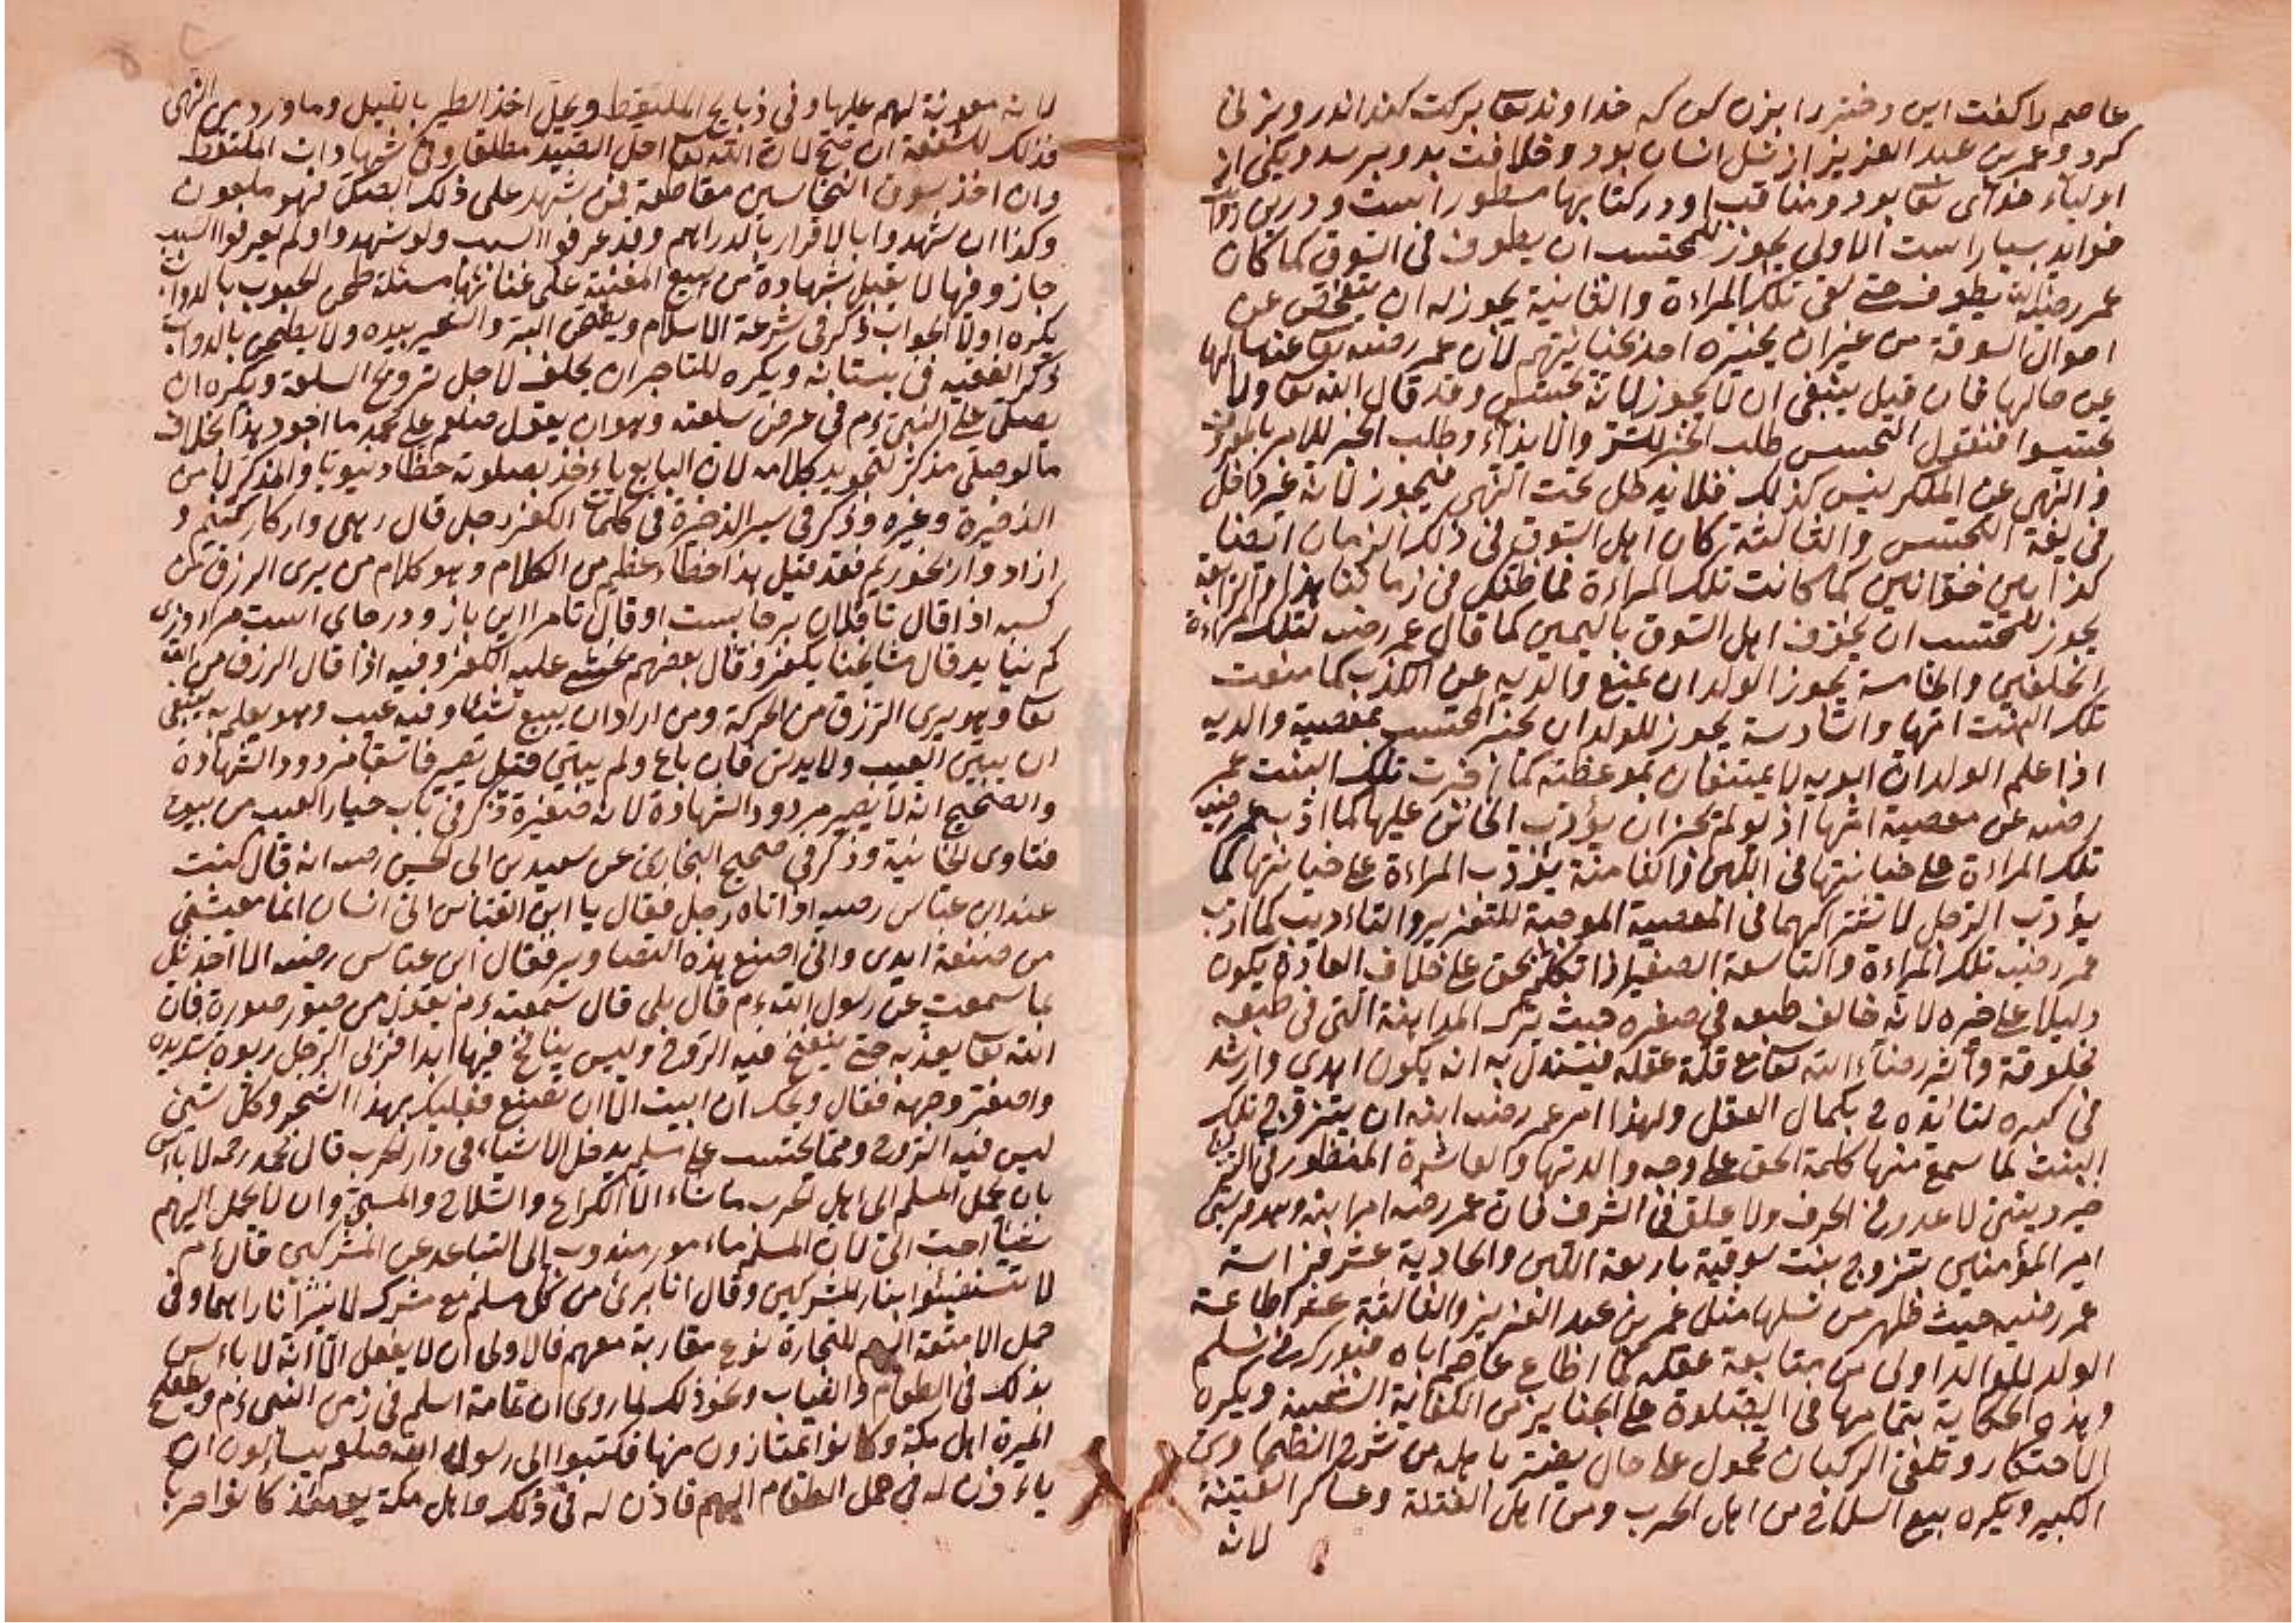 عاصم را كفت اين دختر را بزن كن كه خداوند تعا بركت كند اندر وبزنى
كرد وعمر بن عبد العزيز از نسل ايشان بود وخلافت بدو برسد ويكى از
اولياء خداى تعا بود ومناقب او در كتابها مسطور است ودرين
فوايد بسيار است الاولى يجوز للمحتسب ان يطوف فى السوق كما كان
عمر رضيالله يطوف حتى لقى تلك المراءة والثانية يجوز له ان يتفحص عن
احوال السوقة من غيران يخبره احد بخيانتهم لان عمر رضيه تعا عنه سالها
عن حالها فان قيل ينبغى ان لا يجوز لانه تجسس وقد قال الله تعا ولا
تجسسوا فنقول التجسس طلب الخبر للشر والايذاء وطلب الخبر للامر بالمعروف
والنهى عن المنكر ليس كذلك فلا يدخل تحت النهى فيجوز لانه غير داخل
فى لغة التجسس والثالثة كان اهل السوق فى ذلك الزمان ايضا
كذابين خوانين كما كانت تلك المراءة فما ظنك فى زماننا هذا والرابعة
يجوز للمحتسب ان يخوف اهل السوق باليمين كما قال عمر رضيه لتلك المراءة
اتحلفين والخامسة يجوز الولد ان يمنع والديه عن الكذب كما منعت
تلك البنت امها والسادسة يجوز للولد ان يخبر المحتسب بمعصية والديه
اذا علم الولد ان ابويه لا يمتنعان بموعظته كما اخبرت تلك البنت عمر
رضيه عن معصية امها اذ لو لم تخبر ان يؤدب الخائن عليها كما ادب عمر رضيه
تلك المراءة على خيانتها فى اللبن والثامنة يؤدب المراءة على خيانتها كما
يؤدب الرجل لاشتراكهما فى المعصية الموجبة للتعزير والتاءديب كما ادب
عمر رضيه تلك المراءة والتاسعة الصغير اذا تكلم بحق على خلاف العادة يكون
دليلا على خيره لانه خالف طبعه فى صغره حيث ترك المداهنة التى فى طبعه
مخلوقة وآثر رضاء الله تعا مع قلة عقله فيستدل به انه يكون اهدى وارشد
فى كبره لتاءيده بكمال العقل ولهذا امر عمر رضيه ابنه ان يتزوج تلك
البنت لما سمع منها كلمة الحق على وجه والدتها والعاشرة المنظور فى النكاح
خير دينى لا عدول فى الحرف ولا علو فى الشرف فان عمر رضيه امر ابنه وهو قرشى
امير المؤمنين بتزوج بنت سوقية بايعة اللبن والحادية عشر فراسة
عمر رضيه حيث ظهر من نسلها مثل عمر بن عبد العزيز والثالثة عشر اطاعة
الولد للوالد اولى من متابعة عقله كما اطاع عاصم اباه فبورك فى نسله
وهذه الحكاية بتمامها فى الصلوة على الجنايز من الكفاية الشعبية ويكره
الاحتكار وتلقى الركبان محمول على حال يضر باهله من شرح الطحاوى
الكبير ويكره بيع السلاح من اهل الحرب ومن اهل الفتنة وعساكر الفتنة
لانه
لانه معونة لهم عليها وفى ذبايح الملتقط ويحل اخذ الطير بالليل وما ورد من النهى
فذلك للشفقة ان صح لان الله تعا احل الصيد مطلقا وفى شهادات الملتقط
وان اخذ سوق النخاسين مقاطعة فمن شهد على ذلك الصك فهو ملعون
وكذا ان شهدوا بالاقرار بالدراهم وقد عرفوا السبب ولو شهدوا ولم يعرفوا السبب
جاز وفيها لا يقبل شهادة من يبيع المغنية على غنائها مسئلة طحن الحبوب بالدواب
يكره اولا الجواب ذكر فى شرعة الاسلام ويطحن البر والشعير بيده ولا يطحن بالدواب
ذكر الفقيه فى بستانه ويكره للتاجر ان يحلف لاجل ترويج السلعة ويكره ان
يصلى على النبى ءم فى عرض سلعته وهو ان يقول صلعم على محمد ما اجود هذا بخلاف
ما لو صلى مذكر لتجويد كلامه لان البايع ياءخذ بصلوته حظا دنيويا والمذكر لا من
الذخيرة وغيره وذكر فى سير الذخيرة فى كلمات الكفر رجل قال رهى واركار كنيم و
ازاد وار بخوريم فقد قيل هذا خطاء عظيم من الكلام وهو كلام من يرى الرزق من
كسبه اذا قال تا فلان برجايست او قال تا مرا اين بازو درجاى است مرا روزى
كم نيايد قال مشايخنا يكفر وقال بعضهم يخشى عليه الكفر وفيه اذا قال الرزق من الله
تعا وهو يرى الرزق من الحركة ومن اراد ان يبيع شيئا وفيه عيب وهو يعلم به ينبغى
ان يبين العيب ولا يدلس فان باع ولم يبين قيل يصير فاسقا مردود الشهادة
والصحيح انه لا يصير مردود الشهادة لانه صغيرة ذكر فى باب خيار العيب من بيوع
فتاوى الخانية وذكر فى صحيح البخارى عن سعيد بن ابى الحسن رضيه انه قال كنت
عند ابن عباس رضيه اذ اتاه رجل فقال يا ابن العباس انى انسان انما معيشتى
من صنعة ايدى وانى اصنع هذه التصاوير فقال ابن عباس رضيه الا احدثك
بما سمعت عن رسول الله ءم قال بلى قال سمعته ءم يقول من صور صورة فان
الله تعا يعذبه حتى ينفخ فيه الروح وليس بنافخ فيها ابدا فربى الرجل ربوة شديدة
واصفر وجهه فقال ويحك ان ابيت الا ان تصنع فعليك بهذا الشجر وكل شئ
ليس فيه الروح ومما يحتسب على مسلم يدخل الاشياء فى دار الحرب قال محمد رحه لا باس
بان يحمل المسلم الى اهل الحرب ما شاء الا الكراع والسلاح والسبى وان لا يحمل اليهم
شيئا احب الى لان المسلم ماءمور مندوب الى التباعد عن المشركين قال ءم
لا تستضيئوا بنار المشركين وقال انا برئ من كل مسلم مع مشرك لا يترا آ ناراهما وفى
حمل الامتعة اليهم للتجارة نوع مقاربة معهم فالاولى ان لا يفعل الا انه لا باءس
بذلك فى الطعام والثياب ونحو ذلك لما روى ان ثمامة اسلم فى زمن النبى ءم ويقطع
الميرة اهل مكة وكانوا يمتازون منها فكتبوا الى رسول الله صلعم يساءلون ان
ياءذن له فى حمل الطعام اليهم فاذن له فى ذلك واهل مكة يومئذ كانوا حربا